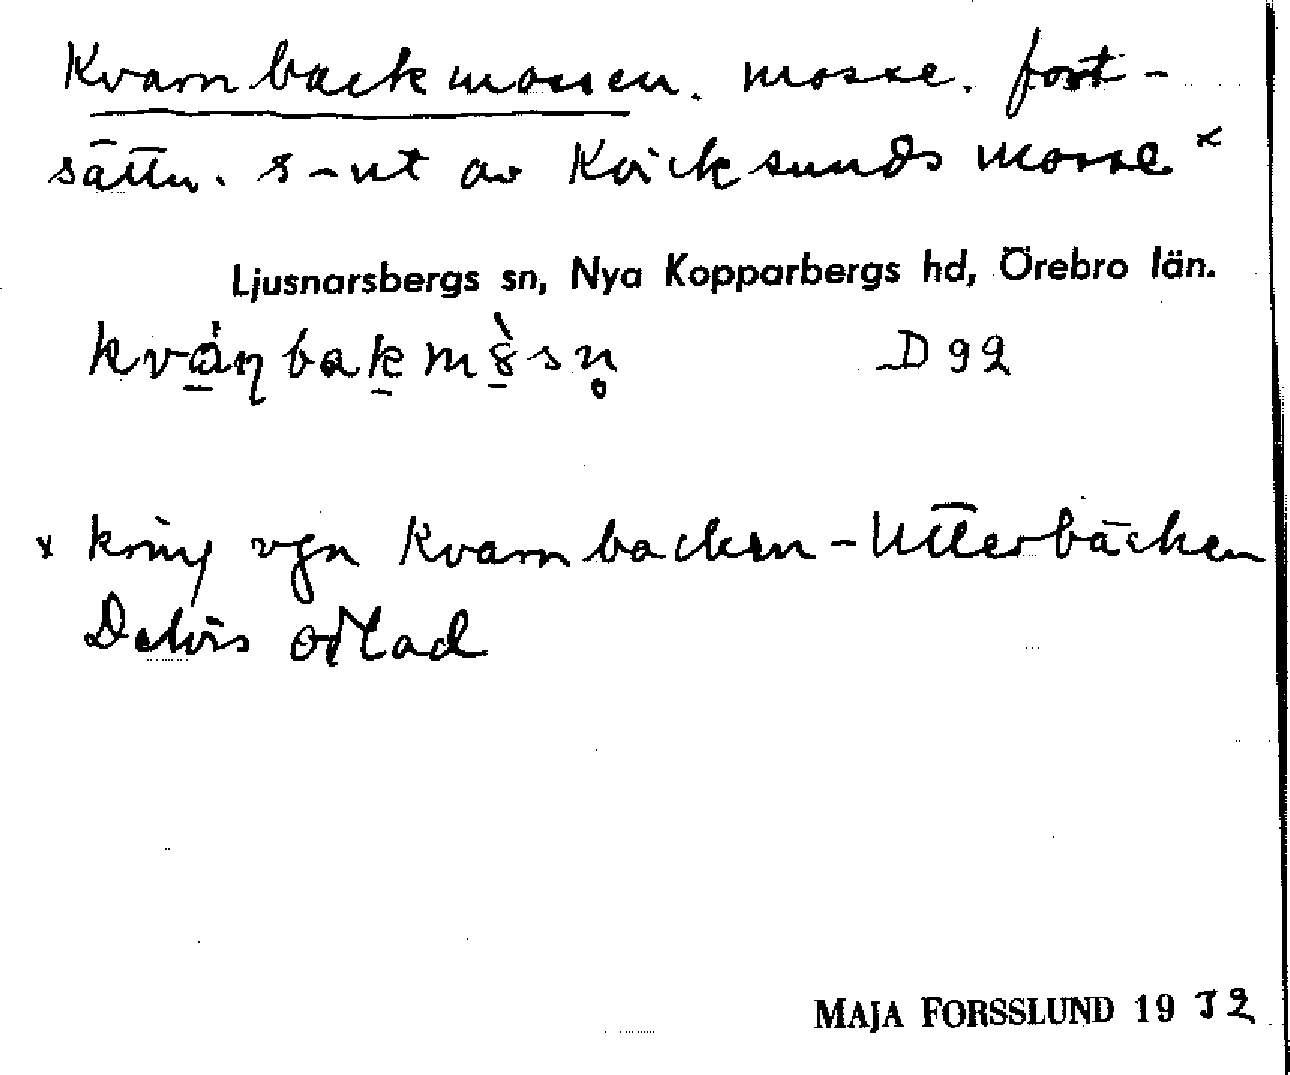 Kvarnbackmossen. mosse. fort-
sättn. s-ut av Käcksunds mosse x
Ljusnarsbergs sn, Nya Kopparbergs hd, Örebro län.
D 92
x kring vgn Kvarnbacken - Utterbäcken
Delvis odlad
MAJA FORSSLUND 19